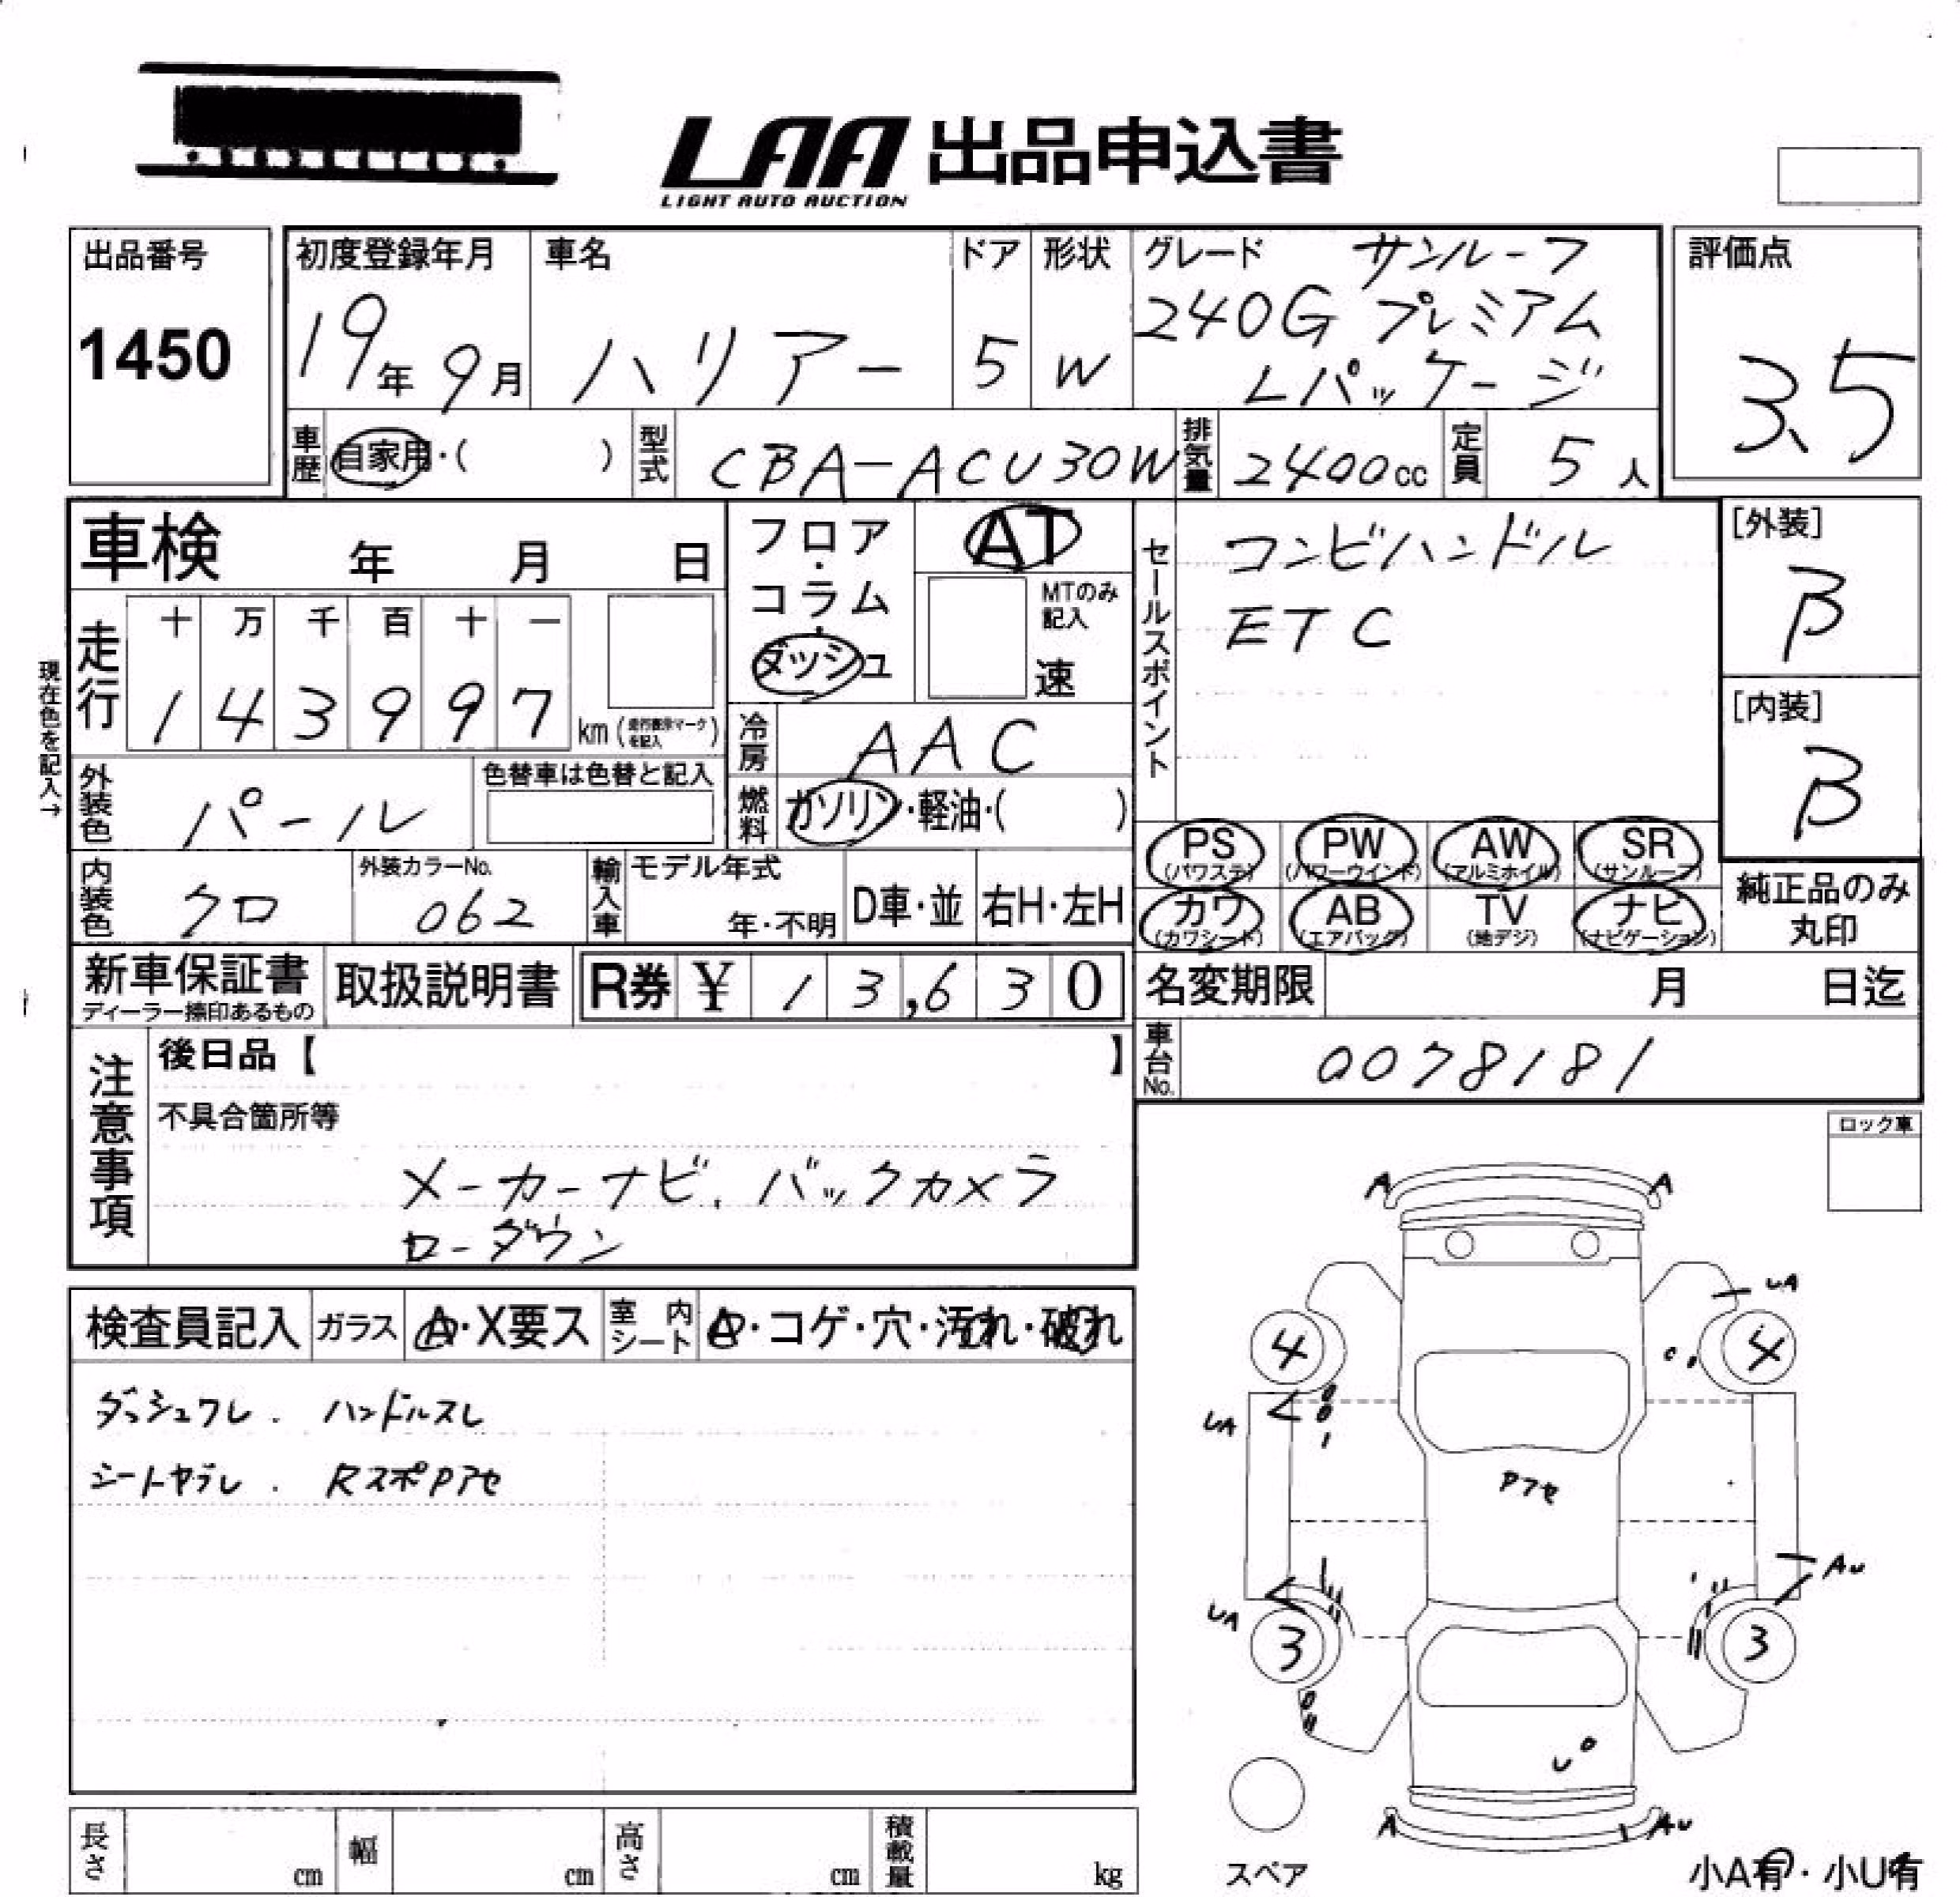 LAA 出品申込書
LIGHT AUTO AUCTION
出品番号
1450
初度登録年月
19年 9月
車名
ハリアー
ドア
5
形状
W
グレード
サンルーフ
240G プレミアム
Lパッケージ
評価点
3.5
車歴
自家用・( )
型式
CBA-ACU30W
排気量
2400cc
定員
5人
車検 年 月 日
走行
十 万 千 百 十 一
1 4 3 9 9 7
km(走行表示マークを記入)
現在色を記入→
外装色
パール
色替車は色替と記入
内装色
クロ
外装カラーNo.
062
輸入車
モデル年式
年・不明
D車・並
右H・左H
フロア・コラム・ダッシュ
AT
MTのみ記入
速
冷房
AAC
燃料
ガソリン・軽油・( )
セールスポイント
コンビハンドル
ETC
[外装]
B
[内装]
B
PS (パワステ) PW (パワーウインド) AW (アルミホイル) SR (サンルーフ)
カワ (カワシート) AB (エアバッグ) TV (地デジ) ナビ (ナビゲーション)
純正品のみ
丸印
新車保証書
ディーラー捺印あるもの
取扱説明書
R券 ¥ 13,630
名変期限 月 日迄
車台No.
0078181
注意事項
後日品【 】
不具合箇所等
メーカーナビ、バックカメラ
ローダウン
検査員記入
ガラス
A・X要ス
室内シート
A・コゲ・穴・汚れ・破れ
ダッシュワレ. ハンドルスレ
シートヤブレ. RスポPアセ
ロック車
A A
UA
4 4
UA
Pアセ
AU
UA
3 3
U
A AU
スペア
小A有・小U有
長さ cm
幅 cm
高さ cm
積載量 kg